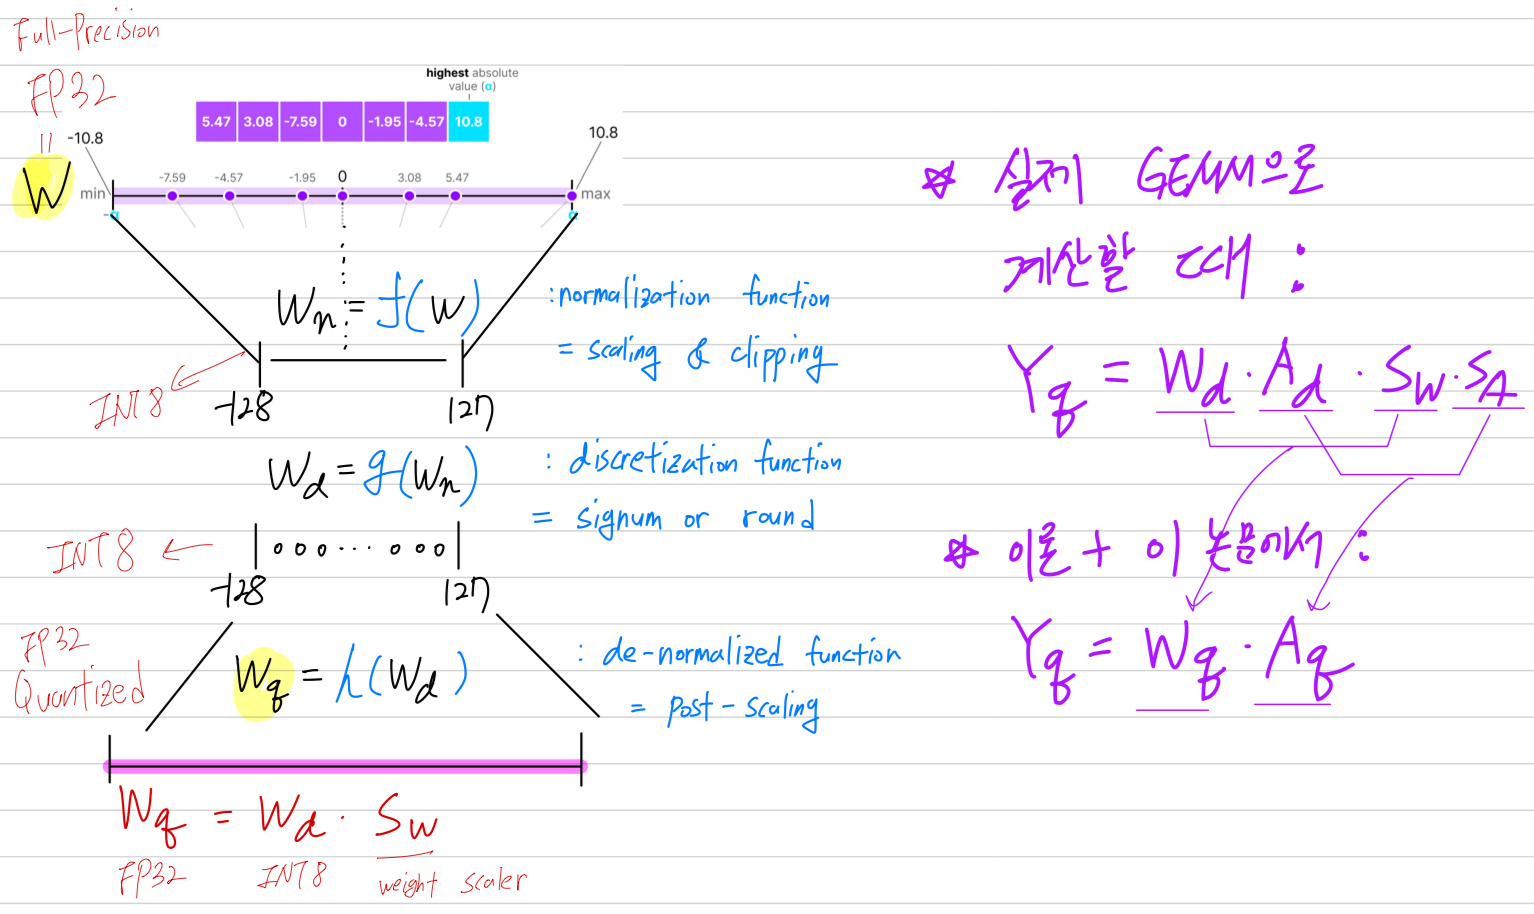 Full-Precision
FP32
=
W
highest absolute
value (α)
5.47 3.08 -7.59 0 -1.95 -4.57 10.8
-10.8
10.8
-7.59 -4.57 -1.95 0 3.08 5.47
min
max
-α
α
Wn = f(W)
: normalization function
= scaling & clipping
INT8
-128
127
Wd = g(Wn)
: discretization function
= signum or round
INT8 ←
o o o ... o o o
-128
127
FP32
Quantized
Wq = h(Wd)
: de-normalized function
= post-scaling
Wq = Wd · Sw
FP32
INT8
weight scaler
☆ 실제 GEMM으로
계산할 때 :
Yq = Wd · Ad · Sw · SA
☆ 이론 + 이 논문에서 :
Yq = Wq · Aq